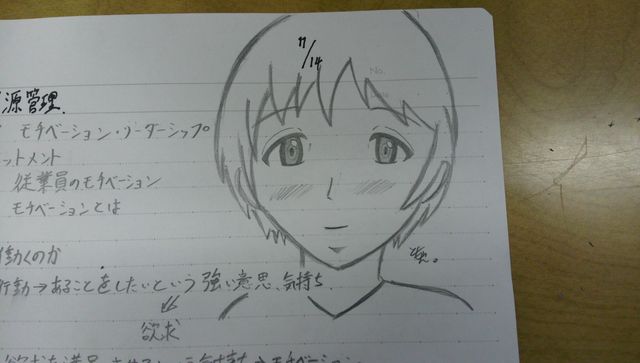 11/14
No.
源管理.
モチベーション・リーダーシップ。
ットメント
従業員のモチベーション
モチベーションとは
動くのか
行動→あることをしたいという強い意思、気持ち.
欲求